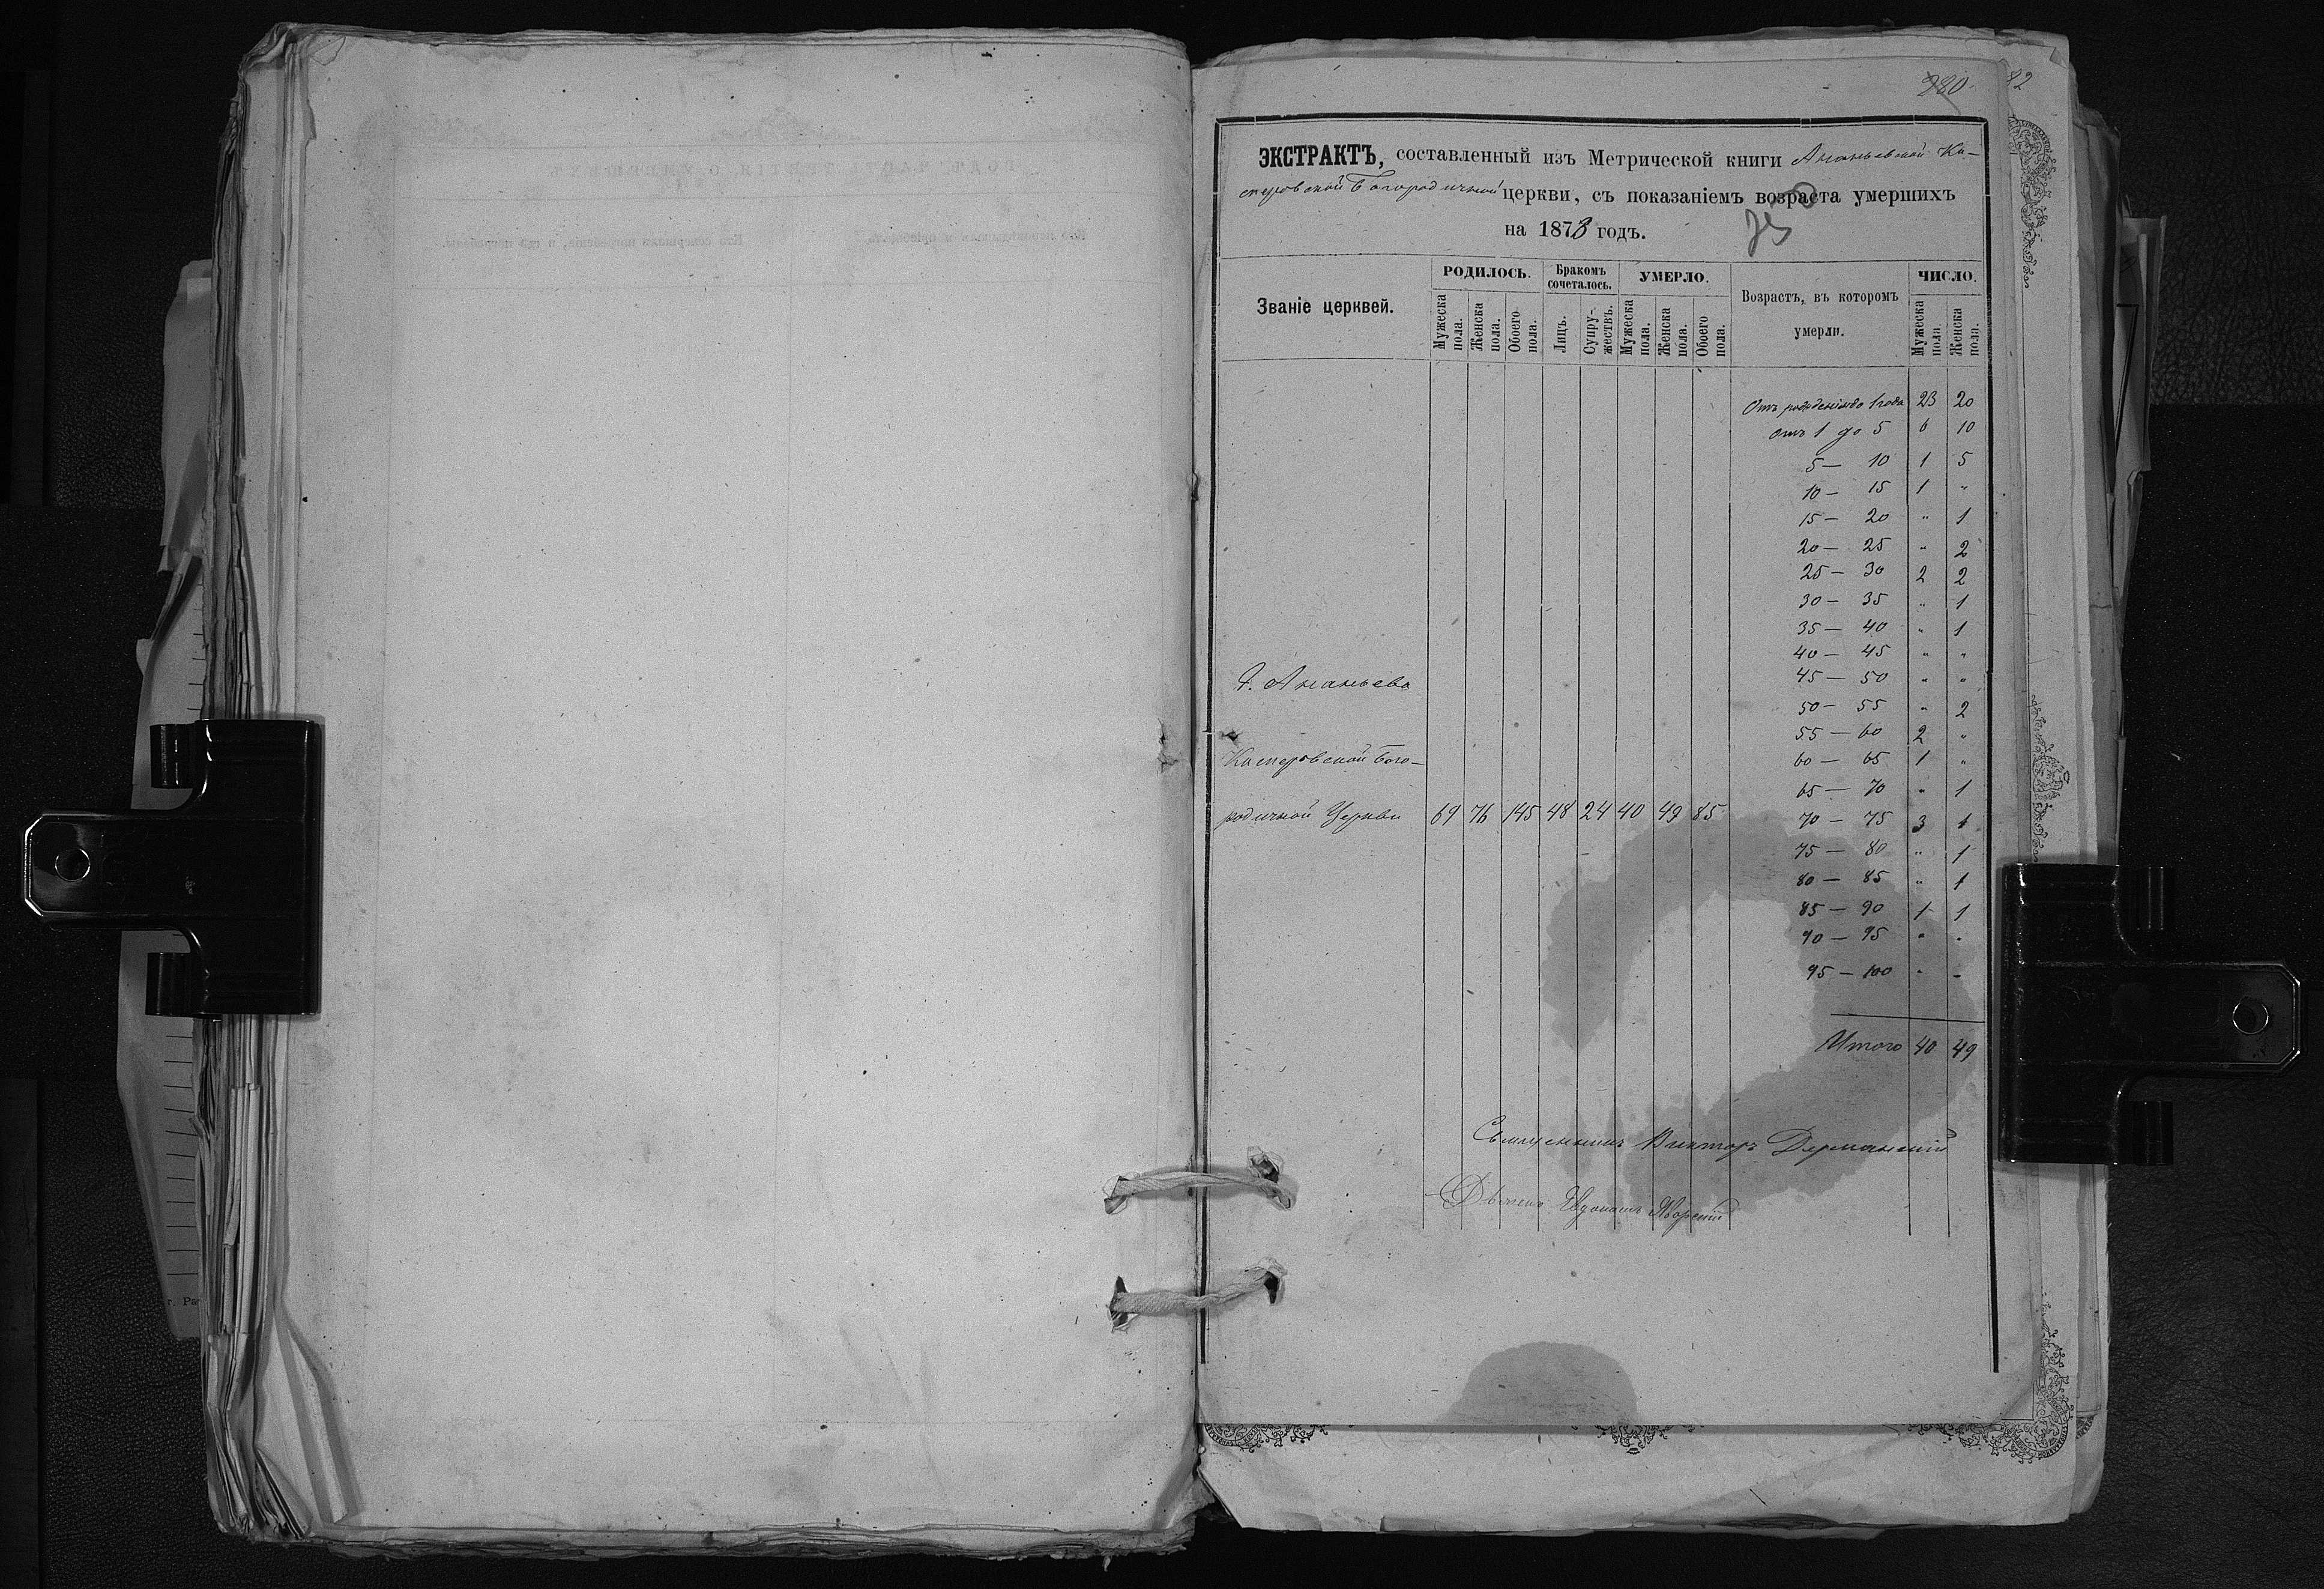 280
82
ЭКСТРАКТЪ, составленный изъ Метрической книги Ананьевской Ка-
сперовской Богородичной церкви, съ показаніемъ возраста умершихъ
на 1873 годъ.
Званіе церквей.
РОДИЛОСЬ.
Бракомъ сочеталось.
УМЕРЛО.
Возрастъ, въ которомъ умерли.
ЧИСЛО.
Мужеска пола.
Женска пола.
Обоего пола.
Лицъ.
Супру-жествъ.
Мужеска пола.
Женска пола.
Обоего пола.
Мужеска пола.
Женска пола.
Отъ рожденія до 1 года 23 20
отъ 1 до 5 6 10
5 — 10 1 5
10 — 15 1 "
15 — 20 " 1
20 — 25 " 2
25 — 30 2 2
30 — 35 " 1
35 — 40 " 1
40 — 45 " "
45 — 50 " "
50 — 55 " 2
55 — 60 2 "
60 — 65 1 "
65 — 70 " 1
70 — 75 3 1
75 — 80 " 1
80 — 85 " 1
85 — 90 1 1
90 — 95 " "
95 — 100 " "
Итого 40 49
Г. Ананьева
Касперовской Бого-
родичной Церкви 69 76 145 48 24 40 49 85
Священникъ Викторъ Дерманскій
Яворскій